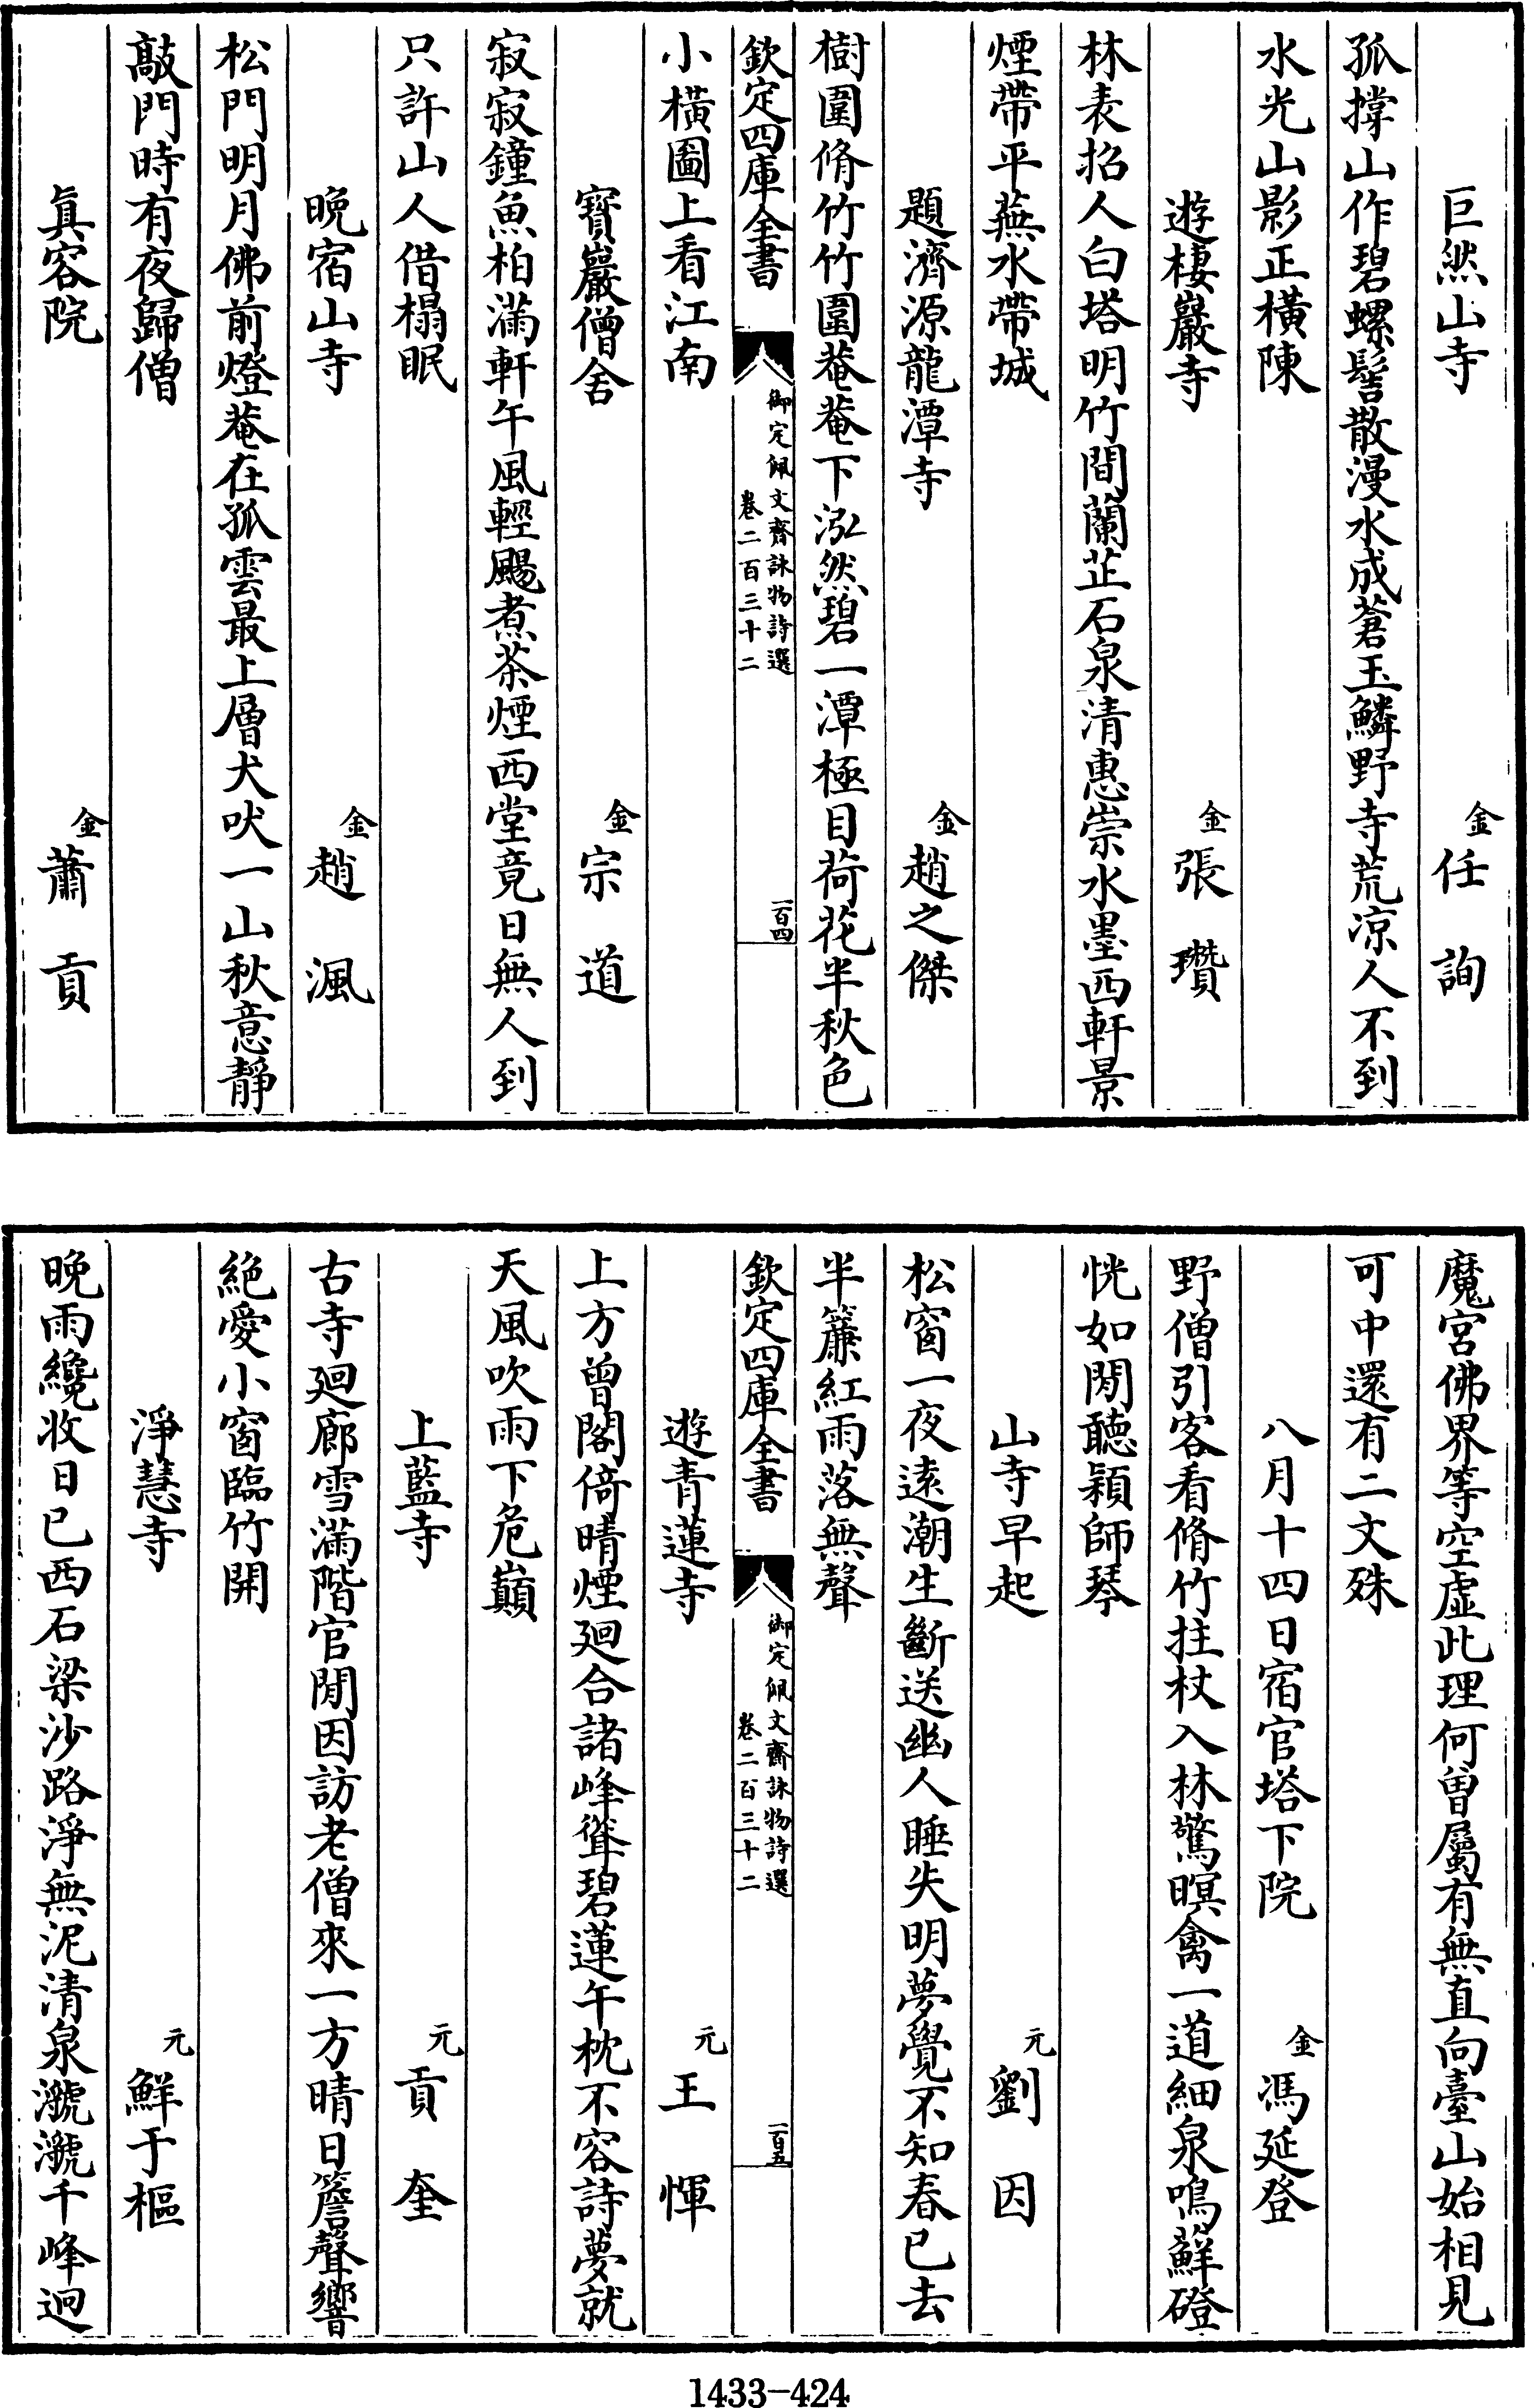 巨然山寺　金任詢
孤撐山作碧螺髻散漫水成蒼玉鱗野寺荒凉人不到
水光山影正橫陳
遊棲巖寺　金張瓚
林表招人白塔明竹間蘭芷石泉清惠崇水墨西軒景
煙帶平蕪水帶城
題濟源龍潭寺　金趙之傑
樹圍脩竹竹圍菴菴下泓然碧一潭極目荷花半秋色
欽定四庫全書　御定佩文齋詠物詩選　卷二百三十二　一百四
小橫圖上看江南
寶巖僧舍　金宗道
寂寂鐘魚柏滿軒午風輕颺煮茶煙西堂竟日無人到
只許山人借榻眠
晚宿山寺　金趙渢
松門明月佛前燈菴在孤雲最上層犬吠一山秋意靜
敲門時有夜歸僧
眞容院　金蕭貢
魔宮佛界等空虛此理何曾屬有無直向臺山始相見
可中還有二文殊
八月十四日宿官塔下院　金馮延登
野僧引客看脩竹拄杖入林驚暝禽一道細泉鳴鮮磴
恍如閒聽穎師琴
山寺早起　元劉因
松窗一夜遠潮生斷送幽人睡失明夢覺不知春已去
半簾紅雨落無聲
欽定四庫全書　御定佩文齋詠物詩選　卷二百三十二　一百五
遊青蓮寺　元王惲
上方曾閣倚晴煙廻合諸峰聳碧蓮午枕不容詩夢就
天風吹雨下危巔
上藍寺　元貢奎
古寺廻廊雪滿階官閒因訪老僧來一方晴日簷聲響
絕愛小窗臨竹開
淨慧寺　元鮮于樞
晚雨纔收日已西石梁沙路淨無泥清泉㶁㶁千峰迥
1433-424